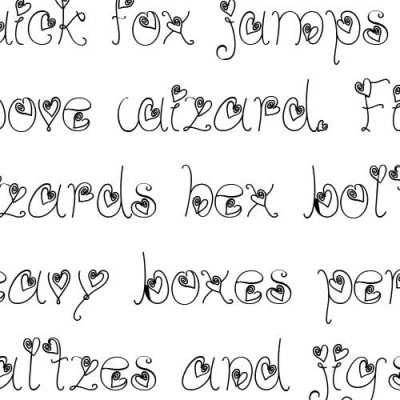 uick fox jumps
ove wizard. Fi
izards hex bolt
eavy boxes per
altzes and jigs